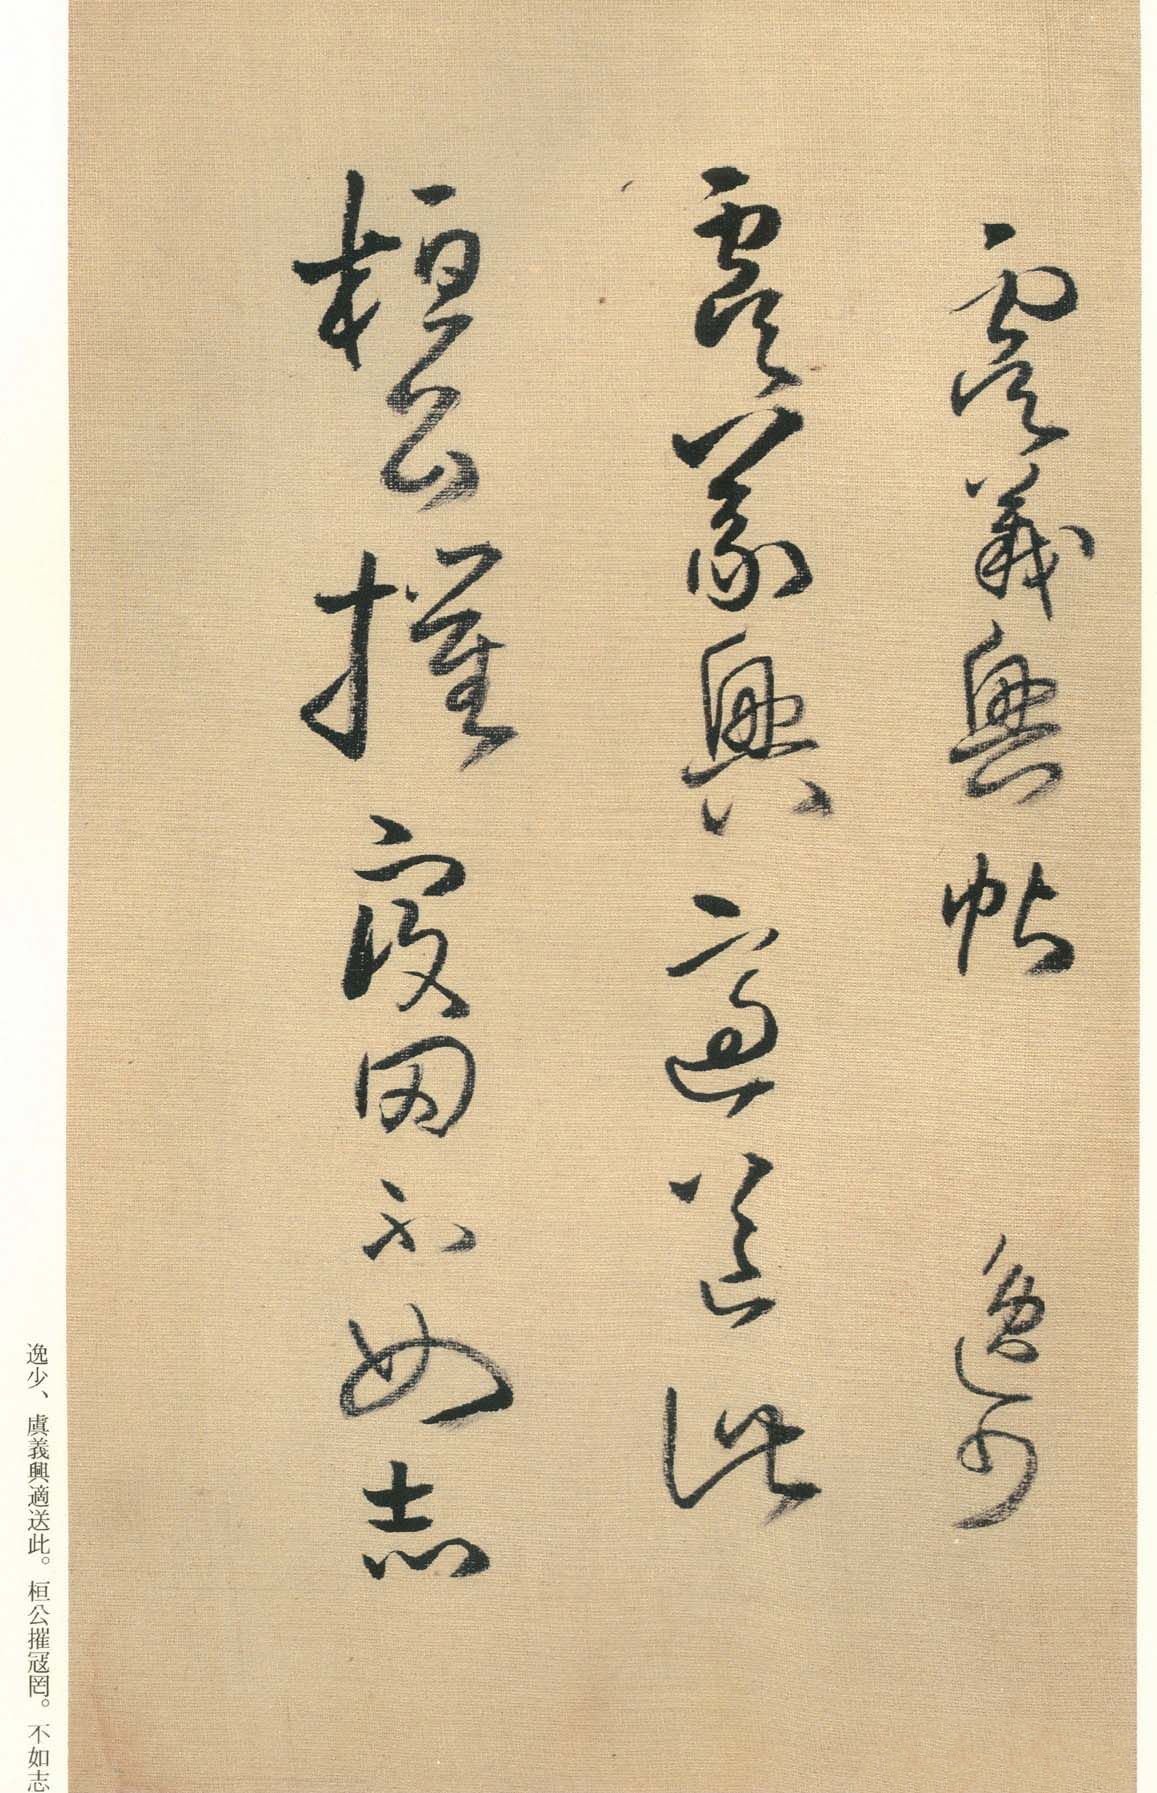 虞義興帖 逸少
虞義興適送此
桓公摧寇罔不如志
逸少、虞義興適送此。桓公摧寇罔。不如志